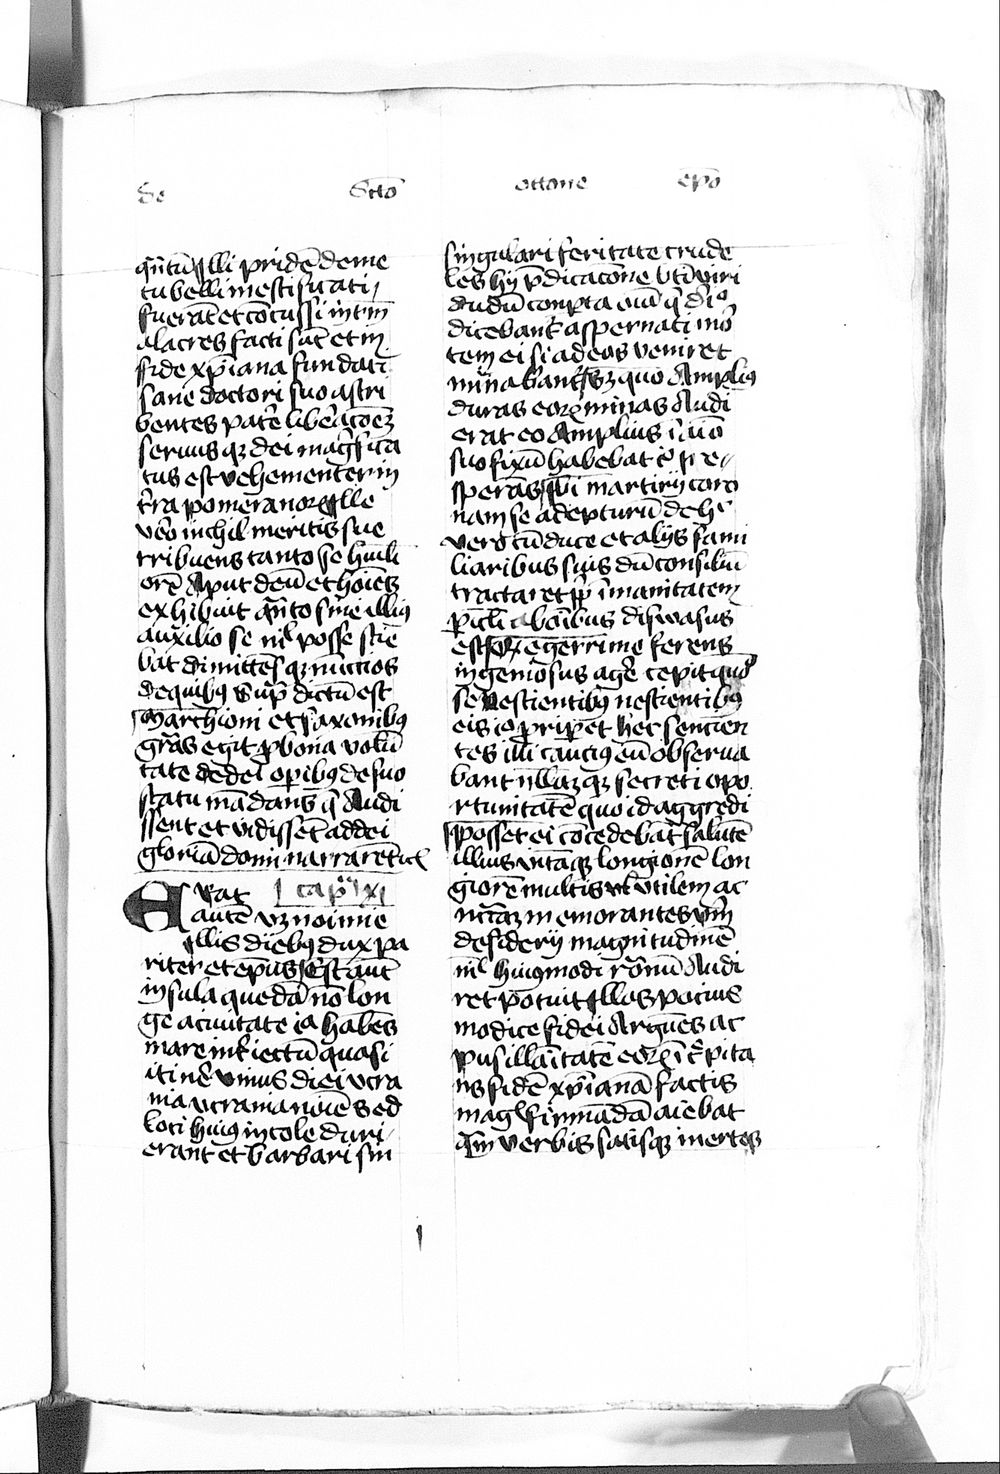 de Scto ottone epo
qntu illi pride de me
tu belli mesti fu ati
fuerat et concussi intm
alacres facti sut et in
fide xpiana fundati
sane doctori suo astri
bentes pate liberacoez
seruus qz dei magfica
tus est vehementer in
tra pomeranorz Ille
vero inchil meritis sue
rribuens tanto se huili
ore Aput deu et hoies
exhibuit qnto sine illius
auxilio se nil posse scie
bat dimittes qz nuccios
de quibus sup dictu est
Marchioni et saxonibus
gras egit p bona volu
tate de dei opibus de suo
statu madans q Audi
ssent et vidissent ad dei
gloria domi narrarent
capm xi
Erat
aute vz no inne
Illis diebus dux pa
riter et epus Est aut
insula queda no lon
ge a ciuitate ia habes
mare interiectu quasi
itine vnius diei vcra
nia vcrania noie sed
loci huius incole duri
erant et barbari sin
singulari feritate crude
les hij pdicacone
dudu comperta
dicebant aspernati mo
tem ei si ad eos veniret
minabant Sz quo Amplius
duras eorz minas Audi
erat eo Amplius
suo fixu habebat
speras martirij coro
nam se adepturu de h
vero cu duce et alijs fami
liaribus suis du consiliu
tractaret p imanitatem
picli ab oibus diswasus
est egerrime ferens
ingeniosus age cepit quo
se nescientibus nescientibus
eis riperet hec sencien
tes illi caucius eu obserua
bant nullaz qz secreti opo
rtunitate quo id aggredi
posset ei concedebat salute
illius vitaqz longione lon
giore multis vtilem ac
nctaz memorantes vim
desiderij magnitudine
nil huiusmodi ronu Audi
ret potuit Illos pocius
modice fidei Argues ac
pusillaitate eorz
ns fide xpiana factis
mag firmada aiebat
qm verbis satisqz inertes